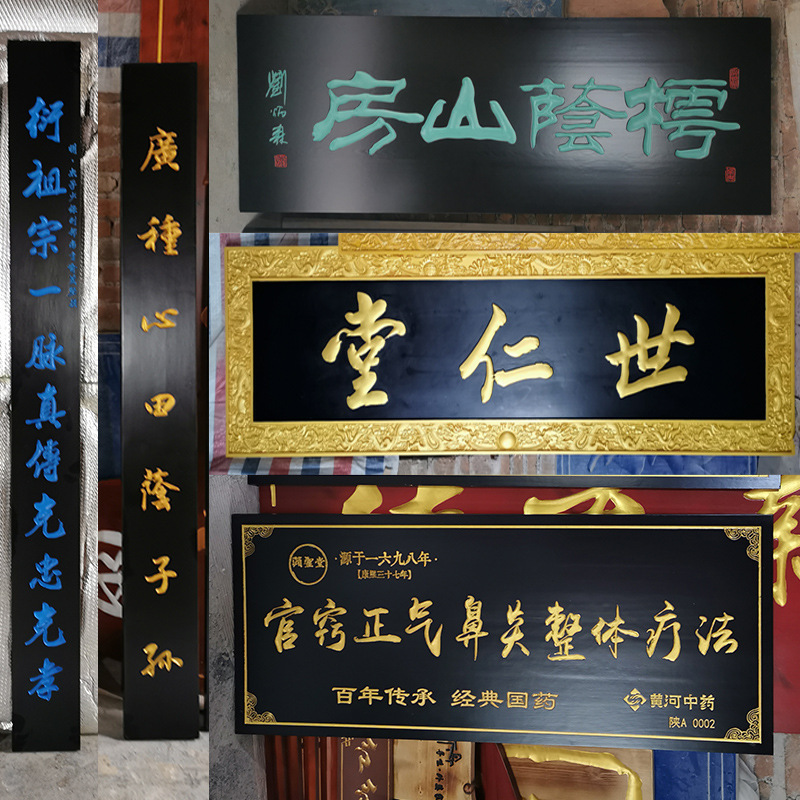 衍祖宗一脉真傳克忠克孝
明·太子少保刑部尚
廣種心田蔭子孫
樗蔭山房
劉炳森
世仁堂
聖堂
·源于一六九八年·
【康熙三十七年】
官窍正气鼻炎整体疗法
百年传承 经典国药
黄河中药
陝A 0002